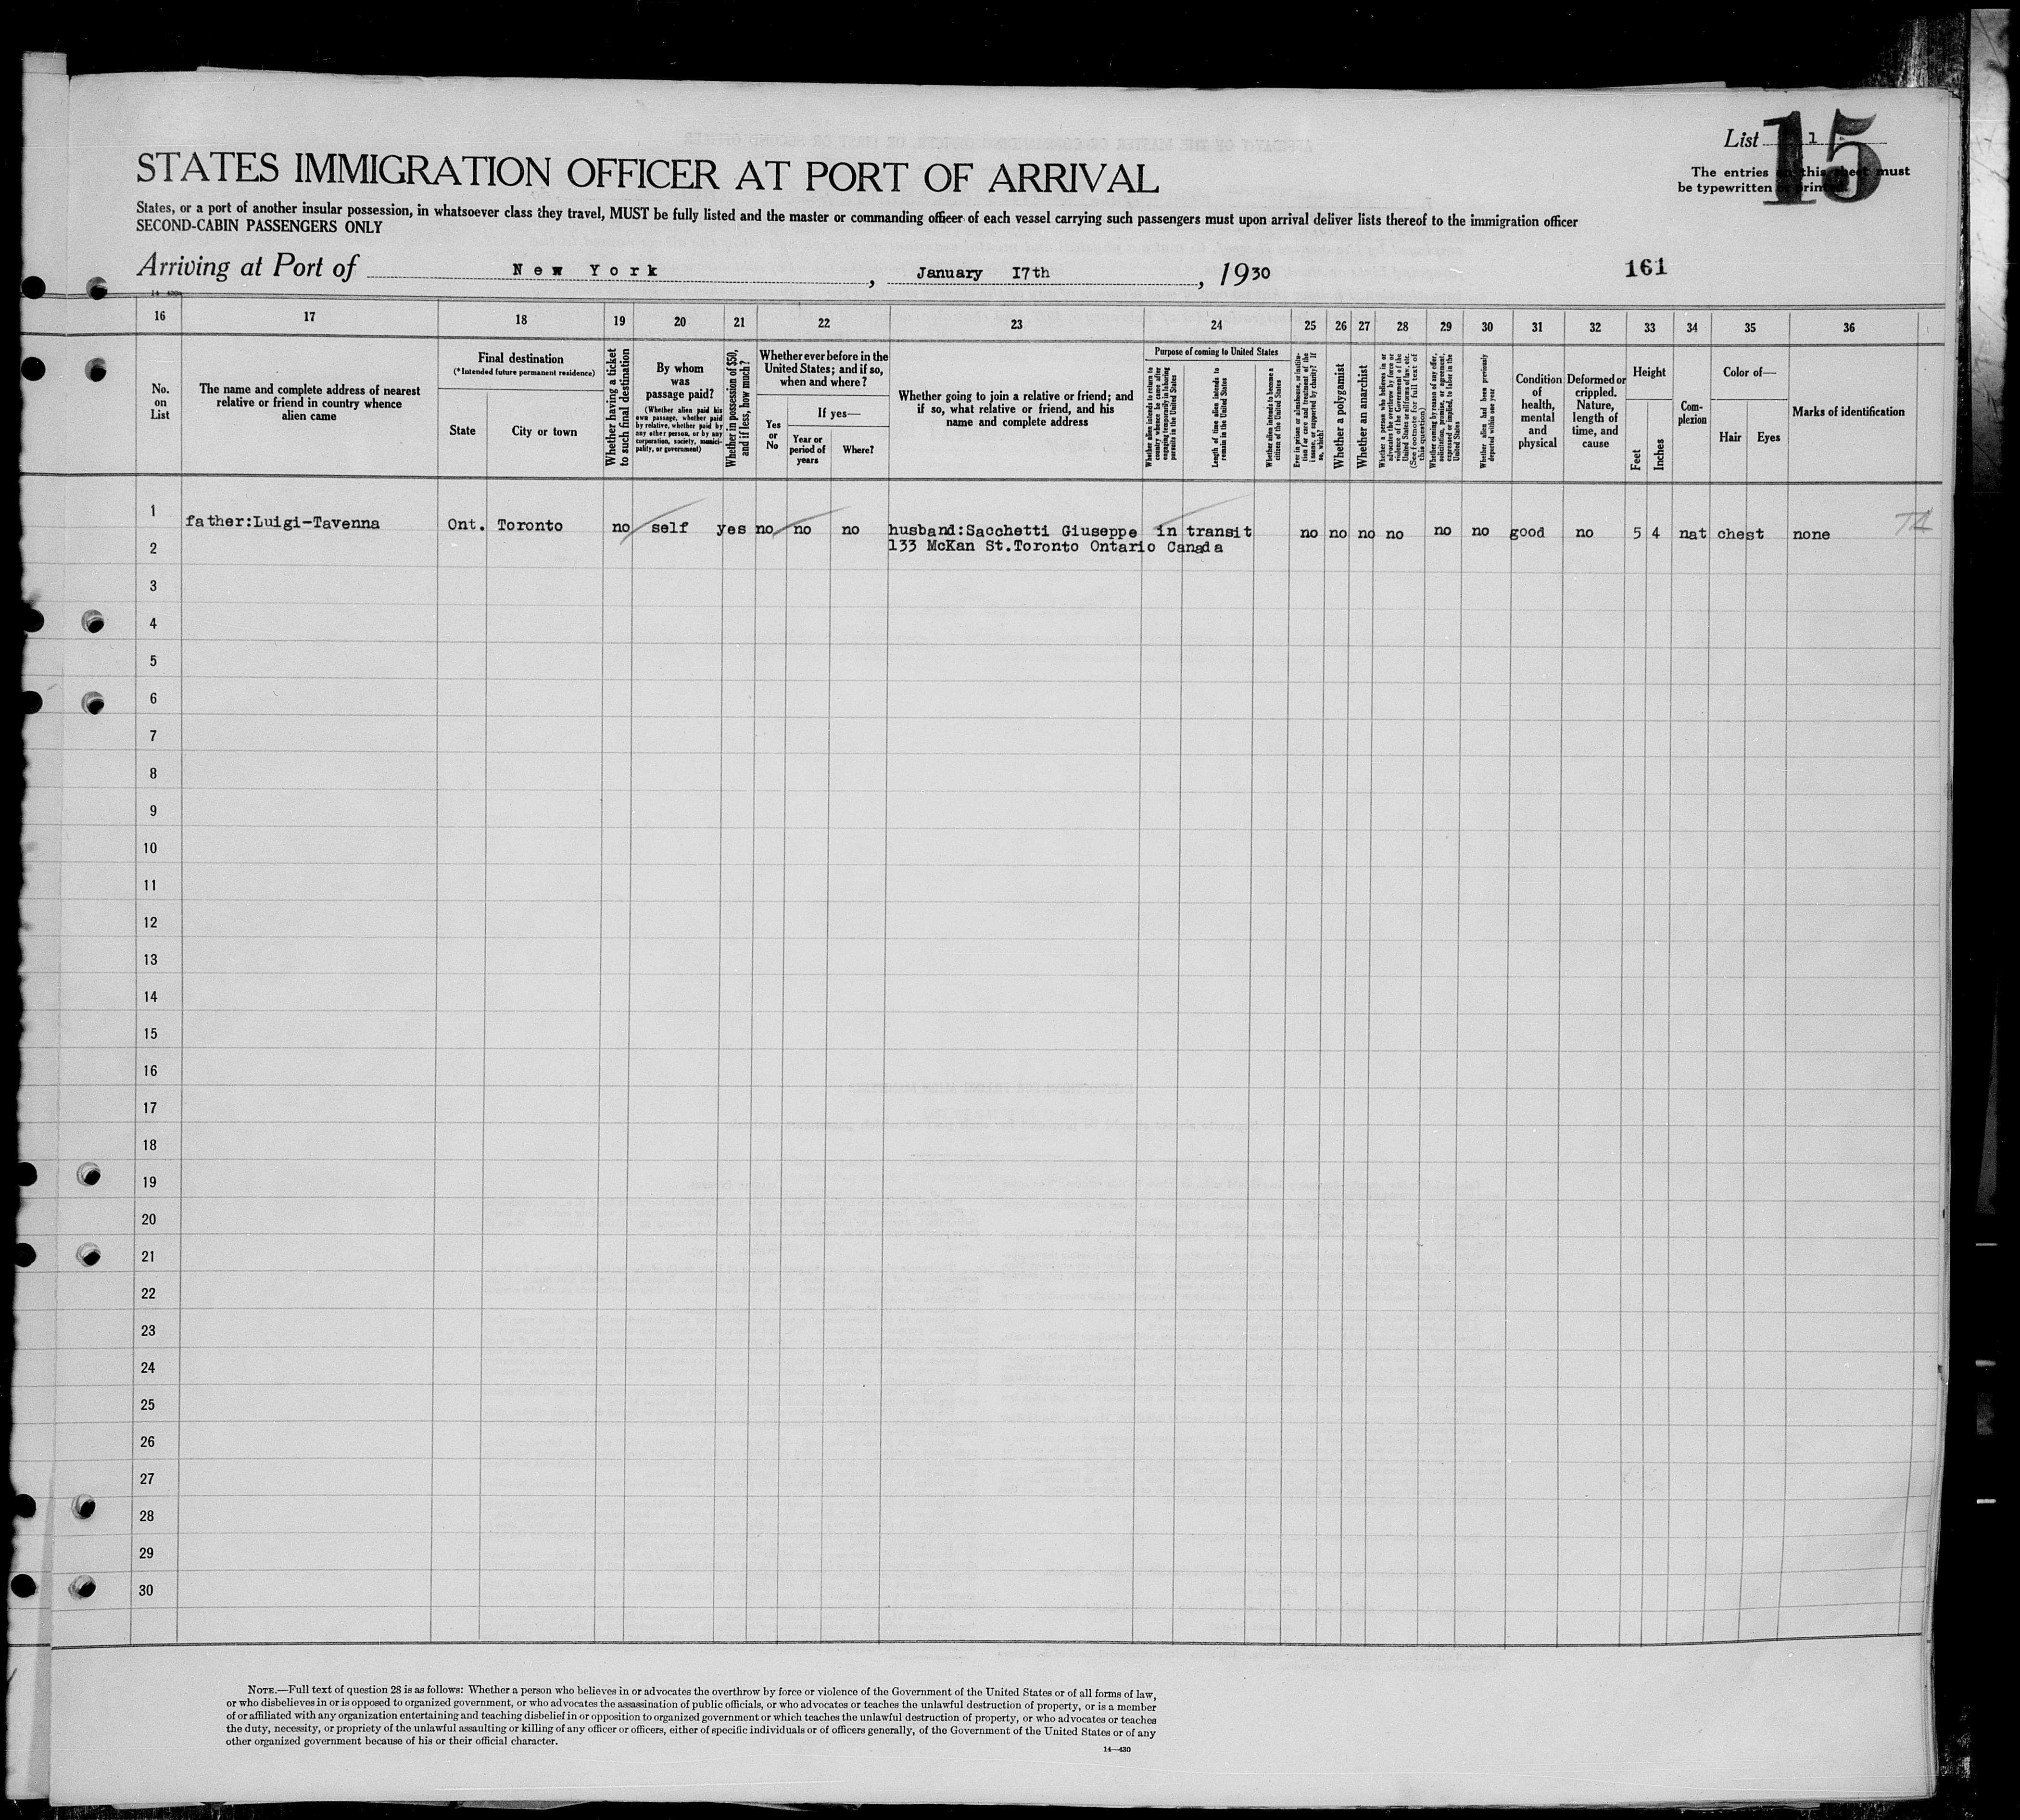 List 1
15
The entries on this sheet must
be typewritten or printed.
STATES IMMIGRATION OFFICER AT PORT OF ARRIVAL
States, or a port of another insular possession, in whatsoever class they travel, MUST be fully listed and the master or commanding officer of each vessel carrying such passengers must upon arrival deliver lists thereof to the immigration officer
SECOND-CABIN PASSENGERS ONLY
Arriving at Port of New York, January 17th, 1930
161
14—430a
16 17 18 19 20 21 22 23 24 25 26 27 28 29 30 31 32 33 34 35 36
No. on List
The name and complete address of nearest relative or friend in country whence alien came
Final destination
(*Intended future permanent residence)
State
City or town
Whether having a ticket to such final destination
By whom was passage paid?
(Whether alien paid his own passage, whether paid by relative, whether paid by any other person, or by any corporation, society, municipality, or government)
Whether in possession of $50, and if less, how much?
Whether ever before in the United States; and if so, when and where?
Yes or No
If yes—
Year or period of years
Where?
Whether going to join a relative or friend; and if so, what relative or friend, and his name and complete address
Purpose of coming to United States
Whether alien intends to return to country whence he came after engaging temporarily in laboring pursuits in the United States
Length of time alien intends to remain in the United States
Whether alien intends to become a citizen of the United States
Ever in prison or almshouse, or institution for care and treatment of the insane, or supported by charity? If so, which?
Whether a polygamist
Whether an anarchist
Whether a person who believes in or advocates the overthrow by force or violence of the Government of the United States or all forms of law, etc. (See footnote for full text of this question)
Whether coming by reason of any offer, solicitation, promise, or agreement, expressed or implied, to labor in the United States
Whether alien had been previously deported within one year
Condition of health, mental and physical
Deformed or crippled. Nature, length of time, and cause
Height
Feet
Inches
Complexion
Color of—
Hair
Eyes
Marks of identification
1 father:Luigi-Tavenna Ont. Toronto no self yes no no no husband:Sacchetti Giuseppe in transit no no no no no no good no 5 4 nat chest none
2 133 McKan St.Toronto Ontario Canada
3
4
5
6
7
8
9
10
11
12
13
14
15
16
17
18
19
20
21
22
23
24
25
26
27
28
29
30
NOTE.—Full text of question 28 is as follows: Whether a person who believes in or advocates the overthrow by force or violence of the Government of the United States or of all forms of law,
or who disbelieves in or is opposed to organized government, or who advocates the assassination of public officials, or who advocates or teaches the unlawful destruction of property, or is a member
of or affiliated with any organization entertaining and teaching disbelief in or opposition to organized government or which teaches the unlawful destruction of property, or who advocates or teaches
the duty, necessity, or propriety of the unlawful assaulting or killing of any officer or officers, either of specific individuals or of officers generally, of the Government of the United States or of any
other organized government because of his or their official character.
14—430